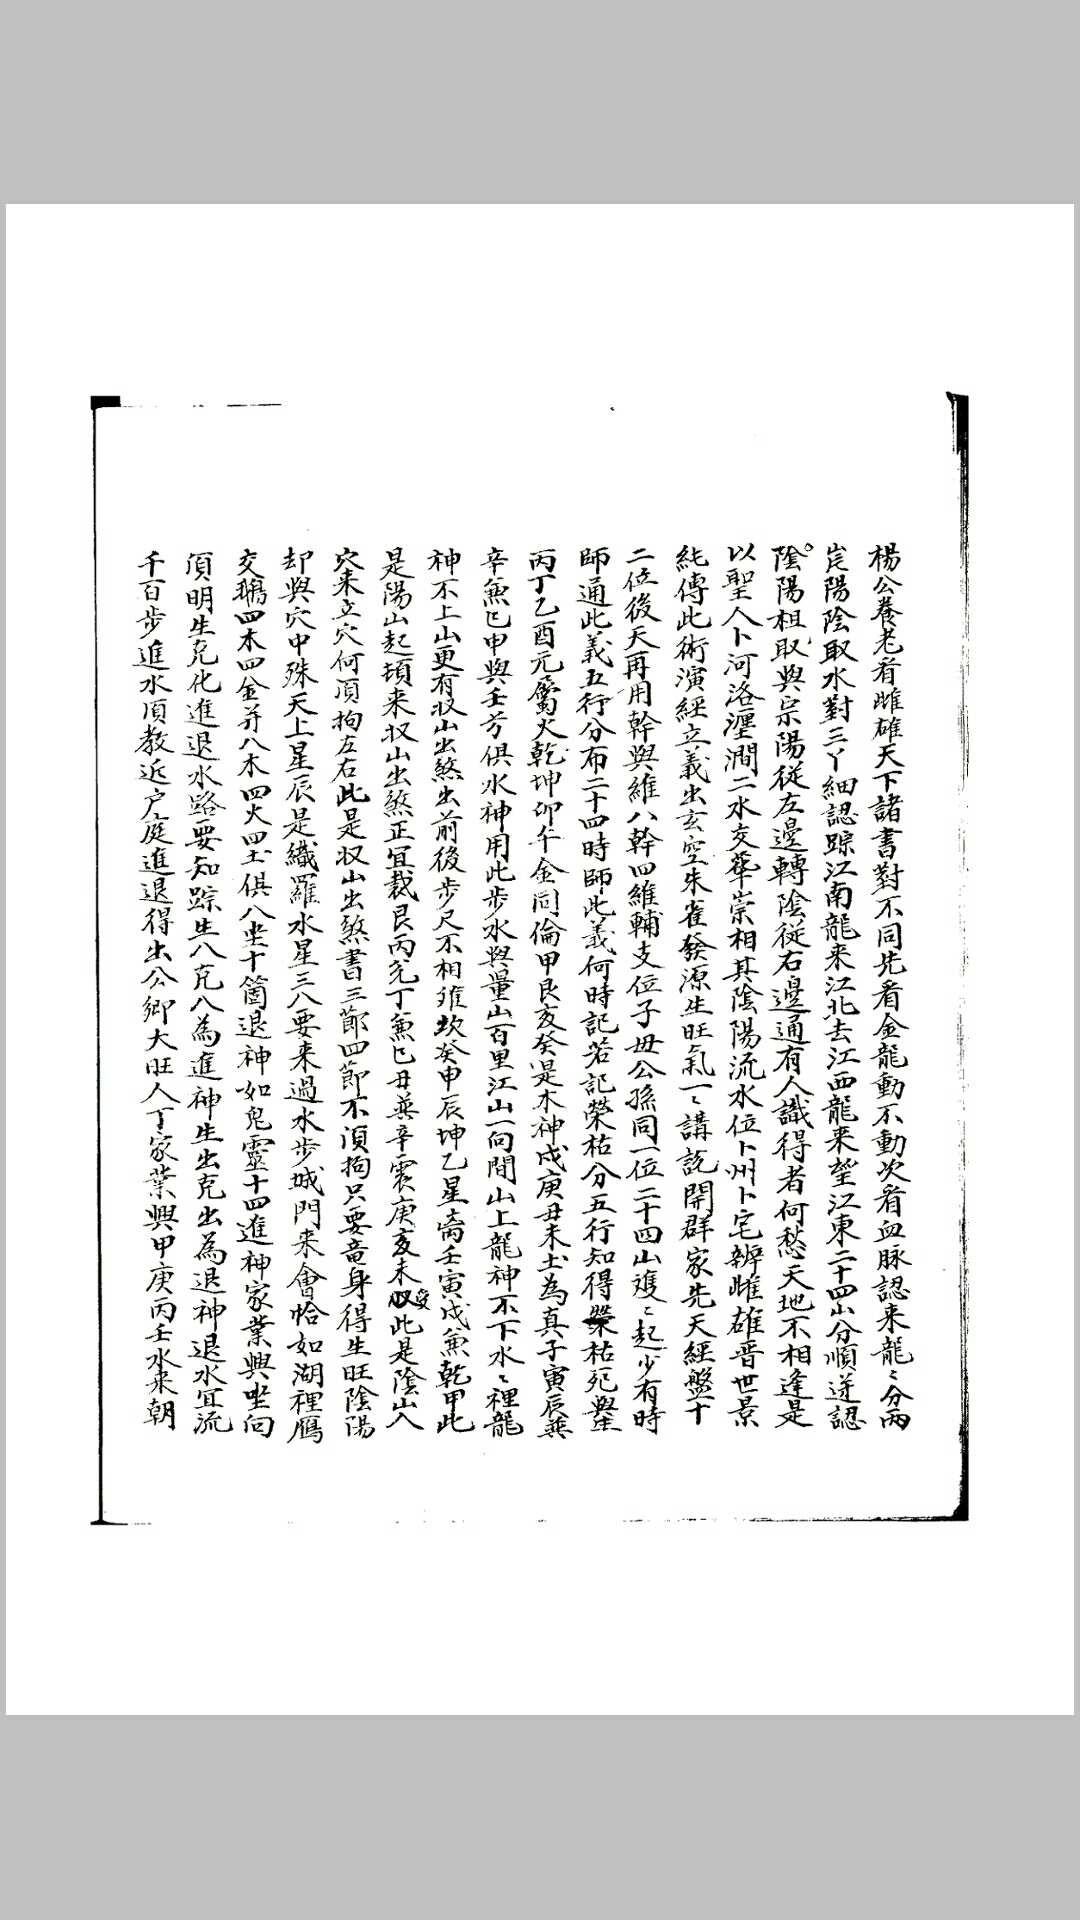 楊公養老看雌雄天下諸書對不同先看金龍動不動次看血脉認来龍〻分兩
㟁陽陰取水對三丫細認踪江南龍来江北去江西龍来望江東二十四山分順逆認
陰陽祖取與宗陽從左邊轉陰從右邊通有人識得者何愁天地不相逢是
以聖人卜河洛瀍澗二水交華崇相其陰陽流水位卜州卜宅辨雌雄晋世景
純傳此術演經立義出玄空朱雀發源生旺氣一〻講說開群家先天經盤十
二位後天再用幹與維八幹四維輔支位子母公孫同一位二十四山䨇〻起少有時
師通此義五行分布二十四時師此義何時記若記榮枯分五行知得榮枯死與生
丙丁乙酉元屬火乾坤卯午金同倫甲艮亥癸是木神戍庚丑未土為真子寅辰巽
辛兼巳申與壬方俱水神用此步水與量山百里江山一向間山上龍神不下水〻裡龍
神不上山更有収山出煞出前後步尺不相雅坎癸申辰坤乙星离壬寅戍兼乾甲此
是陽山起頂来収山出煞正宜裁艮丙兑丁兼巳丑巽辛震庚亥未収受此是陰山入
穴来立穴何須拘左右此是収山出煞書三節四節不須拘只要竜身得生旺陰陽
却與穴中殊天上星辰是織羅水星三八要来過水步城門来會恰如湖裡鴈
交鵝四木四金并八木四火四土俱八坐十箇退神如鬼靈十四進神家業興坐向
須明生克化進退水路要知踪生八克八為進神生出克出為退神退水宜流
千百步進水須教近户庭進退得出公卿大旺人丁家業興甲庚丙壬水来朝